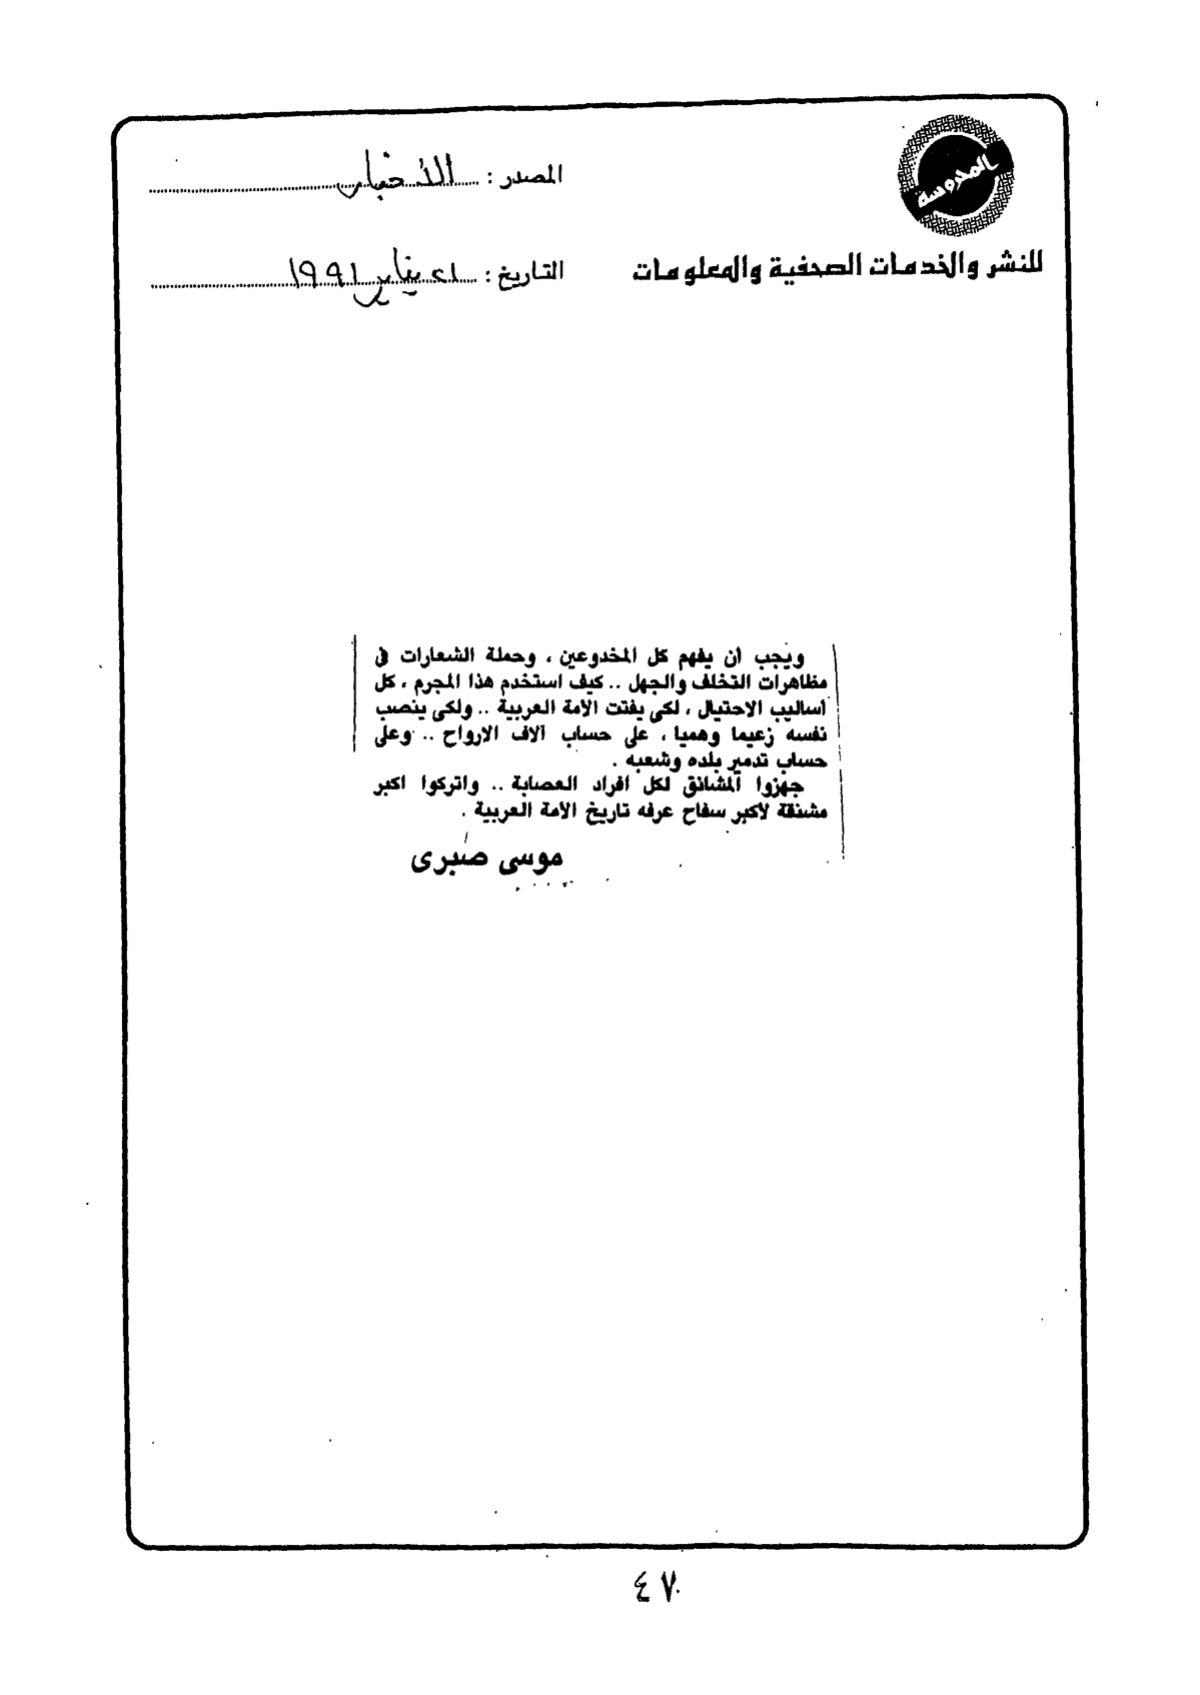 المحروسة
للنشر والخدمات الصحفية والمعلومات
المصدر : الأخبار
التاريخ : ٢١ يناير ١٩٩١
ويجب ان يفهم كل المخدوعين ، وحملة الشعارات فى
مظاهرات التخلف والجهل .. كيف استخدم هذا المجرم ، كل
اساليب الاحتيال ، لكى يفتت الامة العربية .. ولكى ينصب
نفسه زعيما وهميا ، على حساب آلاف الارواح .. وعلى
حساب تدمير بلده وشعبه .
جهزوا المشانق لكل افراد العصابة .. واتركوا اكبر
مشنقة لأكبر سفاح عرفه تاريخ الامة العربية .
موسى صبرى
٤٧